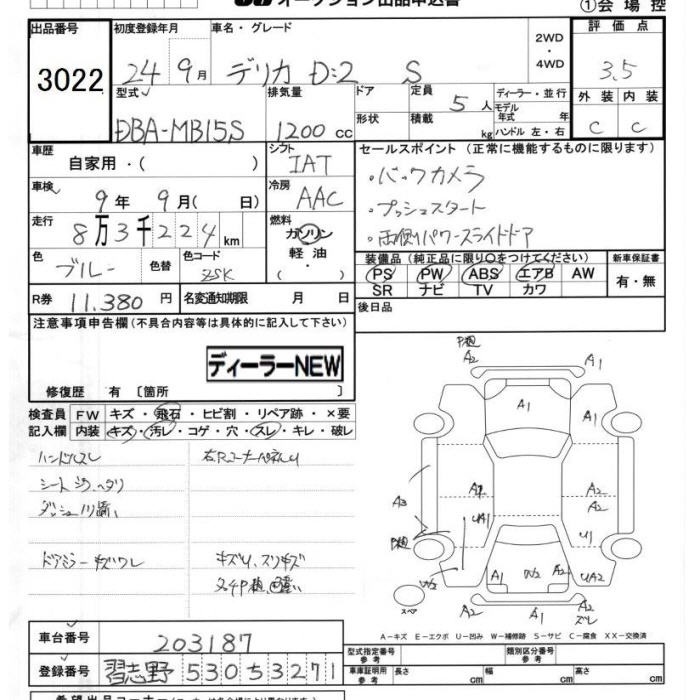 オークション出品申込書
①会場控
出品番号
3022
初度登録年月
24 9月
車名・グレード
デリカ D:2 S
2WD
・
4WD
評価点
3.5
型式
DBA-MB15S
排気量
1200cc
ドア
形状
定員 5人
積載 kg
ディーラー・並行
モデル年式 年
ハンドル 左・右
外装 内装
C C
車歴
自家用・( )
シフト
IAT
セールスポイント (正常に機能するものに限ります)
・バックカメラ
・プッシュスタート
・両側パワースライドドア
車検
9年 9月( 日)
冷房
AAC
走行
8万3千224km
燃料
ガソリン
軽油
色
ブルー
色替
色コード
ZSK
装備品 (純正品に限り○をつけてください)
PS PW ABS エアB AW
SR ナビ TV カワ
新車保証書
有・無
R券 11,380円
名変通知期限 月 日
後日品
注意事項申告欄(不具合内容等は具体的に記入して下さい)
ディーラーNEW
修復歴 有 〔箇所 〕
検査員
記入欄
FW キズ・飛石・ヒビ割・リペア跡・×要
内装 キズ・汚レ・コゲ・穴・スレ・キレ・破レ
ハンドルスレ
ドアミラーキズワレ
キズU、スリキズ
A2
A1
A1
A1
A3
A2
A2
A2
U1
A1
W2
A2
UA2
A2
A1
A2
スレ
スペア
A-キズ E-エクボ U-凹み W-補修跡 S-サビ C-腐食 XX-交換済
車台番号
203187
登録番号
習志野 530 5 3271
型式指定番号
参考
類別区分番号
参考
車庫証明用
参考
長さ cm
幅 cm
高さ cm